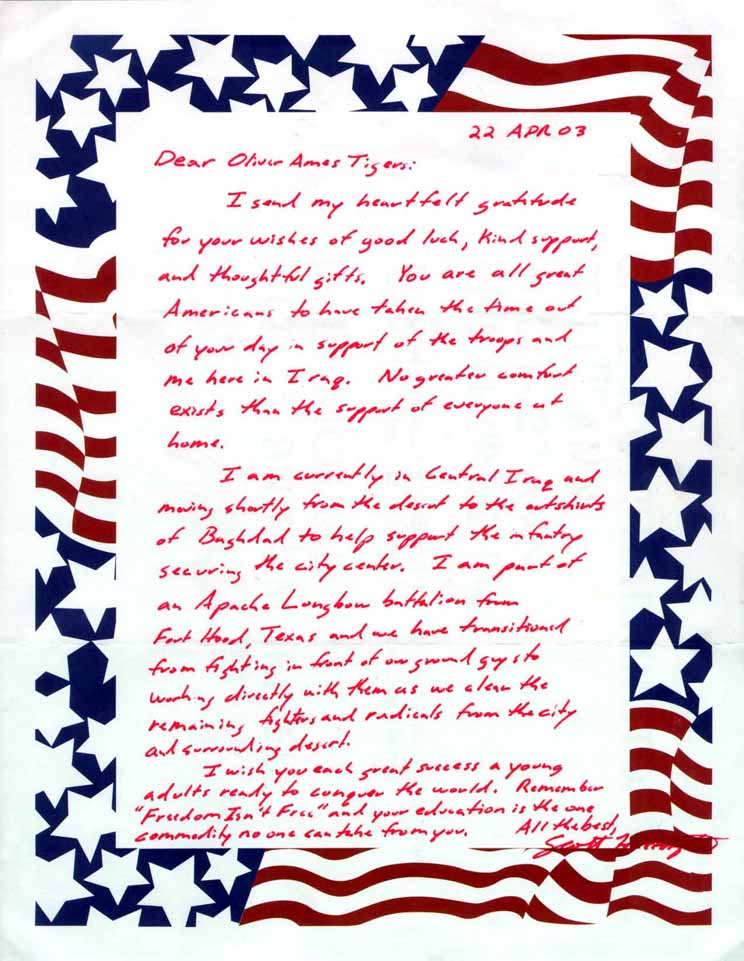 22 APR 03
Dear Oliver Ames Tigers:
I send my heartfelt gratitude
for your wishes of good luck, kind support,
and thoughtful gifts. You are all great
Americans to have taken the time out
of your day in support of the troops and
me here in Iraq. No greater comfort
exists than the support of everyone at
home.
I am currently in Central Iraq and
moving shortly from the desert to the outskirts
of Baghdad to help support the infantry
securing the city center. I am part of
an Apache Longbow battalion from
Fort Hood, Texas and we have transitioned
from fighting in front of our ground guys to
working directly with them as we clear the
remaining fighters and radicals from the city
and surrounding desert.
I wish you each great success a young
adults ready to conquer the world. Remember
"Freedom Isn't Free" and your education is the one
commodity no one can take from you. All the best,
Scott